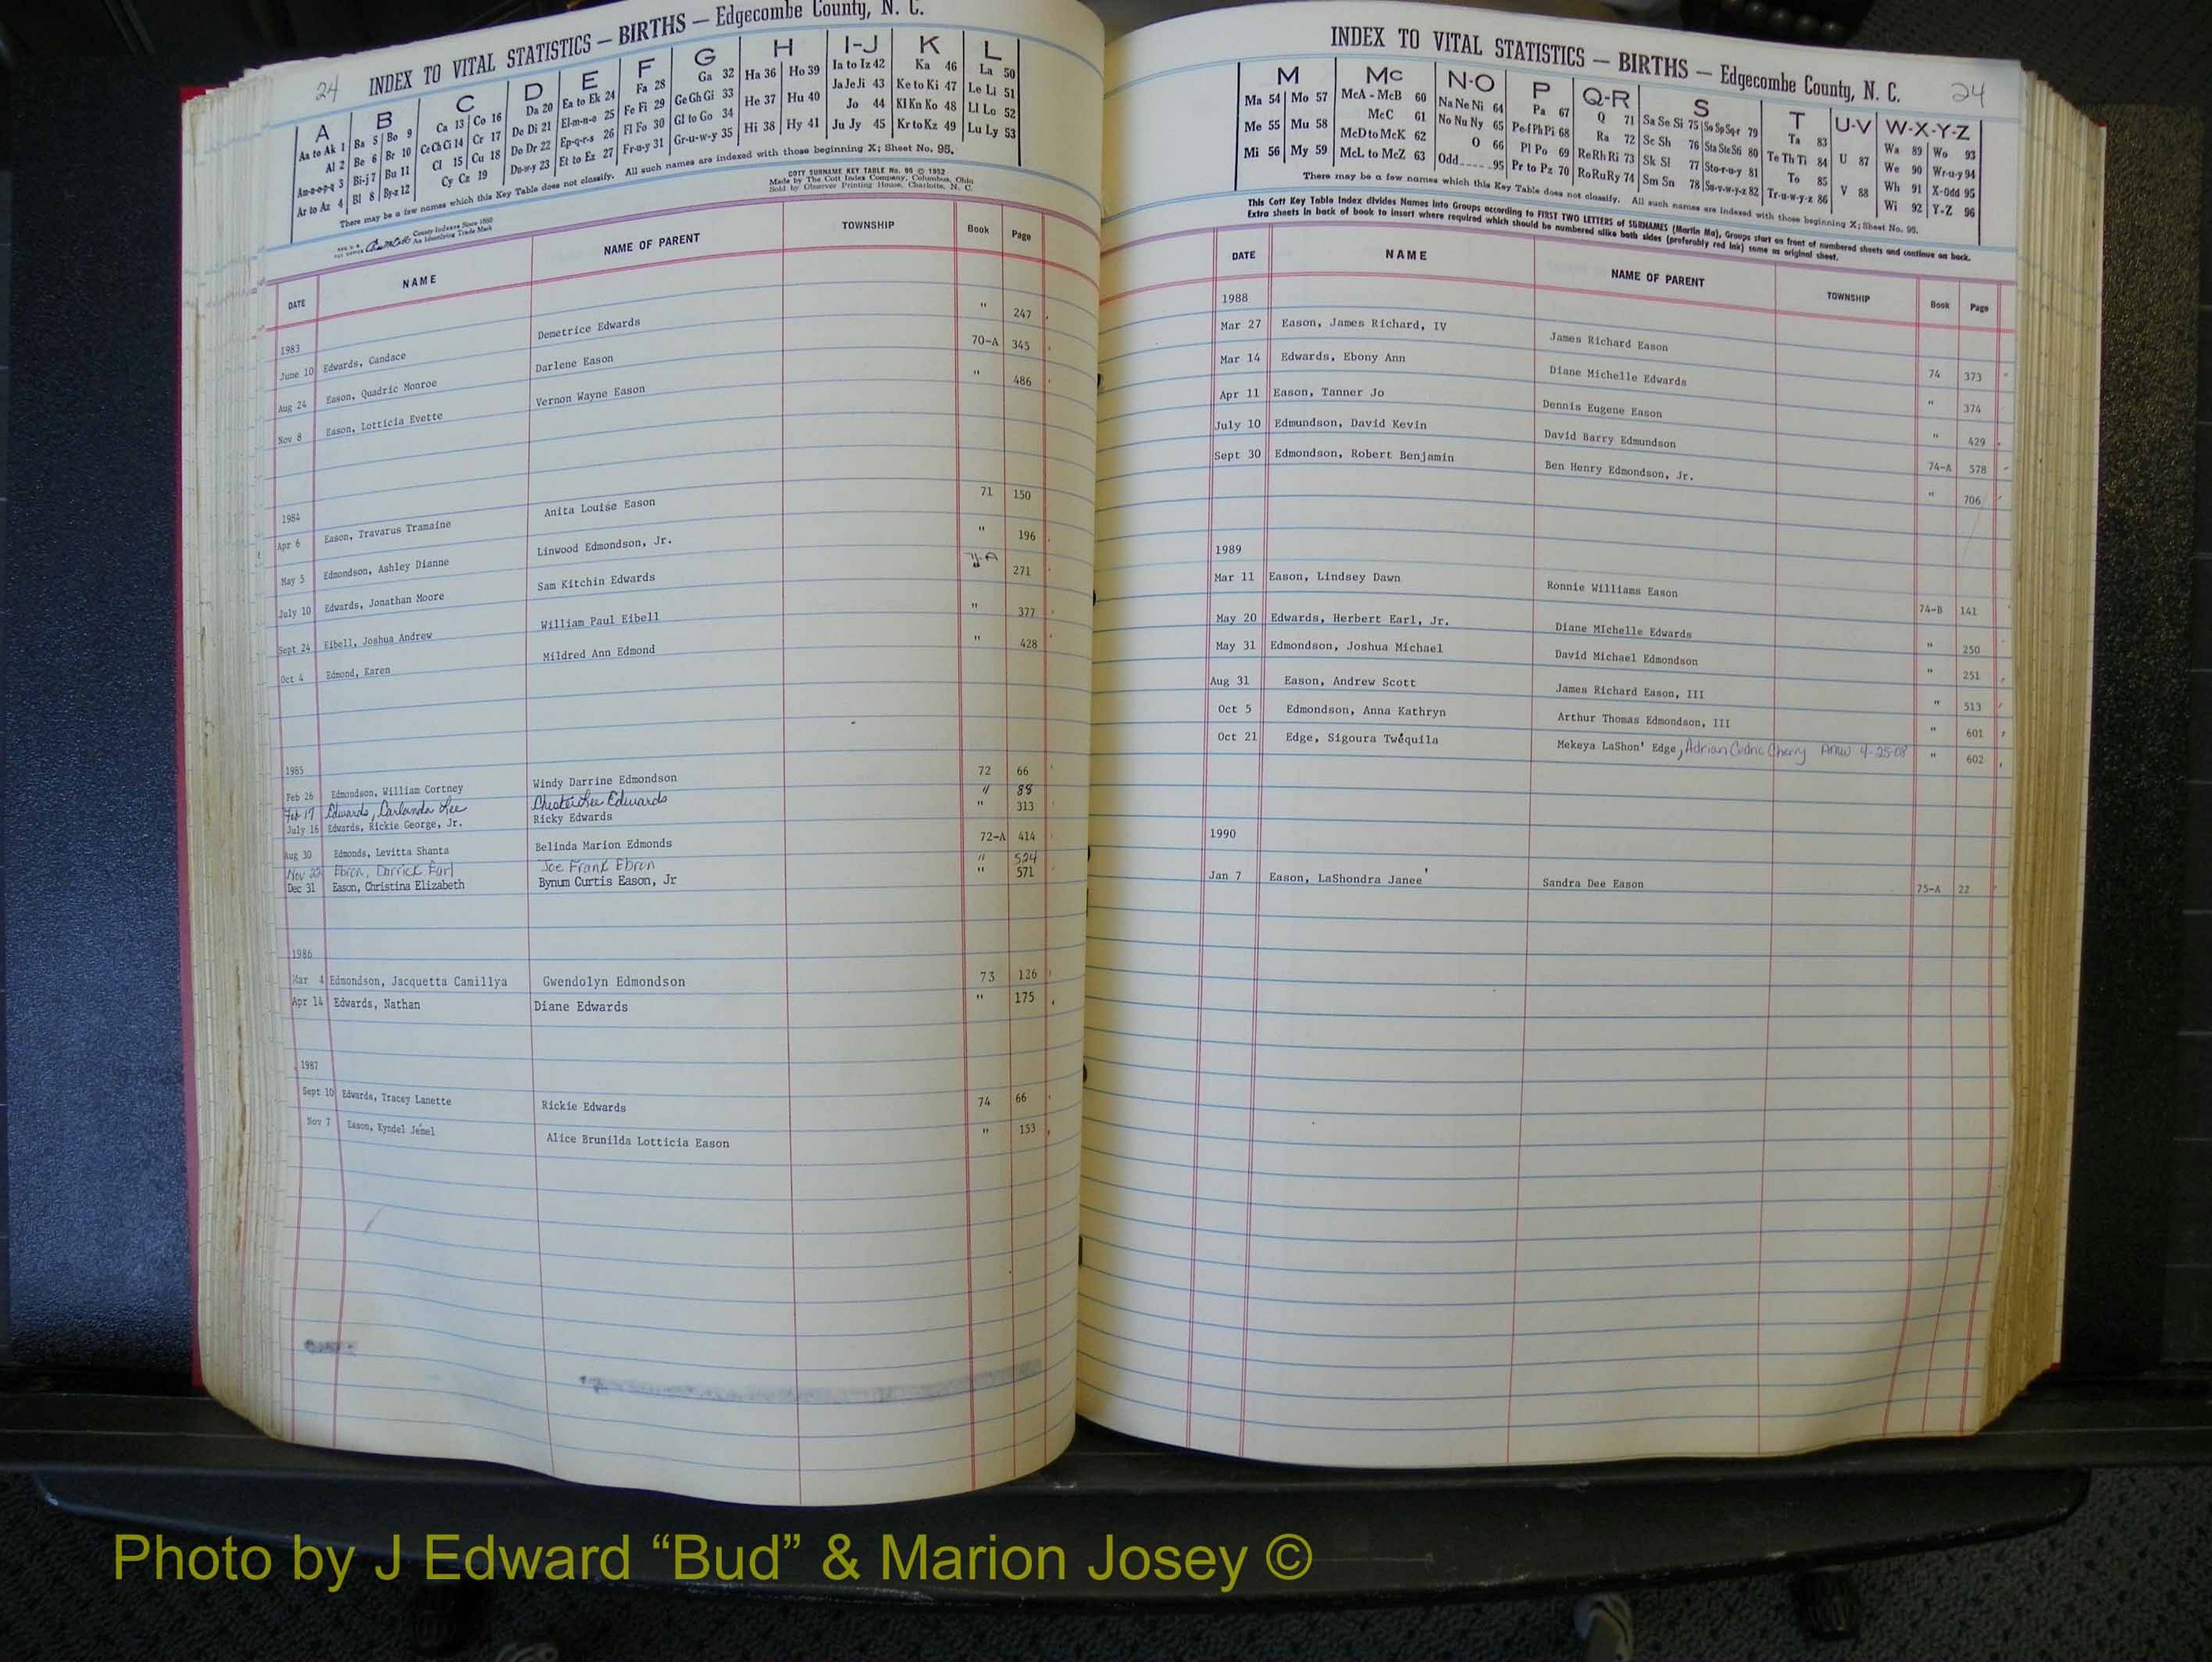 24 INDEX TO VITAL STATISTICS — BIRTHS — Edgecombe County, N. C.
A B C D E F G H I-J K L
Aa to Ak 1 Ba 5 Bo 9 Ca 13 Co 16 Da 20 Ea to Ek 24 Fa 28 Ga 32 Ha 36 Ho 39 Ia to Iz 42 Ka 46 La 50
Al 2 Be 6 Br 10 Ce Ch Ci 14 Cr 17 De Di 21 El-m-n-o 25 Fe Fi 29 Ge Gh Gi 33 He 37 Hu 40 Ja Je Ji 43 Ke to Ki 47 Le Li 51
Am-n-o-p-q 3 Bi-j 7 Bu 11 Cl 15 Cu 18 Do Dr 22 Ep-q-r-s 26 Fl Fo 30 Gl to Go 34 Hi 38 Hy 41 Jo 44 Kl Kn Ko 48 Ll Lo 52
Ar to Az 4 Bl 8 By-z 12 Cy Cz 19 Du-w-y 23 Et to Ez 27 Fr-u-y 31 Gr-u-w-y 35 Ju Jy 45 Kr to Kz 49 Lu Ly 53
There may be a few names which this Key Table does not classify. All such names are indexed with those beginning X; Sheet No. 95.
COTT SURNAME KEY TABLE No. 96 © 1952
Made by The Cott Index Company, Columbus, Ohio
Sold by Observer Printing House, Charlotte, N. C.
County Indexes Since 1888
An Identifying Trade Mark
DATE NAME NAME OF PARENT TOWNSHIP Book Page
1983
June 10 Edwards, Candace Demetrice Edwards " 247
Aug 24 Eason, Quadric Monroe Darlene Eason 70-A 345
Nov 8 Eason, Lotticia Evette Vernon Wayne Eason " 486
1984
Apr 6 Eason, Travarus Tramaine Anita Louise Eason 71 150
May 5 Edmondson, Ashley Dianne Linwood Edmondson, Jr. " 196
July 10 Edwards, Jonathan Moore Sam Kitchin Edwards 71-A 271
Sept 24 Eibell, Joshua Andrew William Paul Eibell " 377
Oct 4 Edmond, Karen Mildred Ann Edmond " 428
1985
Feb 26 Edmondson, William Cortney Windy Darrine Edmondson 72 66
Feb 17 Edwards, Carlanda Lee Chester Lee Edwards " 88
July 16 Edwards, Rickie George, Jr. Ricky Edwards " 313
Aug 30 Edmonds, Levitta Shanta Belinda Marion Edmonds 72-A 414
Nov 22 Ebron, Derrick Earl Joe Frank Ebron " 524
Dec 31 Eason, Christina Elizabeth Bynum Curtis Eason, Jr " 571
1986
Mar 4 Edmondson, Jacquetta Camillya Gwendolyn Edmondson 73 126
Apr 14 Edwards, Nathan Diane Edwards " 175
1987
Sept 10 Edwards, Tracey Lanette Rickie Edwards 74 66
Nov 7 Eason, Kyndel Jémel Alice Brunilda Lotticia Eason " 153
INDEX TO VITAL STATISTICS — BIRTHS — Edgecombe County, N. C. 24
M Mc N-O P Q-R S T U-V W-X-Y-Z
Ma 54 Mo 57 McA - McB 60 Na Ne Ni 64 Pa 67 Q 71 Sa Se Si 75 So Sp Sq-r 79 Ta 83 U 87 Wa 89 Wo 93
Me 55 Mu 58 McC 61 No Nu Ny 65 Pe-f Ph Pi 68 Ra 72 Sc Sh 76 Sta Ste Sti 80 Te Th Ti 84 V 88 We 90 Wr-u-y 94
Mi 56 My 59 McD to McK 62 O 66 Pl Po 69 Re Rh Ri 73 Sk Sl 77 Sto-r-u-y 81 To 85 Wh 91 X-Odd 95
McL to McZ 63 Odd 95 Pr to Pz 70 Ro Ru Ry 74 Sm Sn 78 Su-v-w-y-z 82 Tr-u-w-y-z 86 Wi 92 Y-Z 96
There may be a few names which this Key Table does not classify. All such names are indexed with those beginning X; Sheet No. 95.
This Cott Key Table Index divides Names into Groups according to FIRST TWO LETTERS of SURNAMES (Martin Ma), Groups start on front of numbered sheets and continue on back.
Extra sheets in back of book to insert where required which should be numbered alike both sides (preferably red ink) same as original sheet.
DATE NAME NAME OF PARENT TOWNSHIP Book Page
1988
Mar 27 Eason, James Richard, IV James Richard Eason 74 373
Mar 14 Edwards, Ebony Ann Diane Michelle Edwards " 374
Apr 11 Eason, Tanner Jo Dennis Eugene Eason " 429
July 10 Edmundson, David Kevin David Barry Edmundson 74-A 578
Sept 30 Edmondson, Robert Benjamin Ben Henry Edmondson, Jr. " 706
1989
Mar 11 Eason, Lindsey Dawn Ronnie Williams Eason 74-B 141
May 20 Edwards, Herbert Earl, Jr. Diane MIchelle Edwards " 250
May 31 Edmondson, Joshua Michael David Michael Edmondson " 251
Aug 31 Eason, Andrew Scott James Richard Eason, III " 513
Oct 5 Edmondson, Anna Kathryn Arthur Thomas Edmondson, III " 601
Oct 21 Edge, Sigoura Twéquila Mekeya LaShon' Edge, Adrian Cedric Cherry 4-25-08 " 602
1990
Jan 7 Eason, LaShondra Janee' Sandra Dee Eason 75-A 22
Photo by J Edward “Bud” & Marion Josey ©